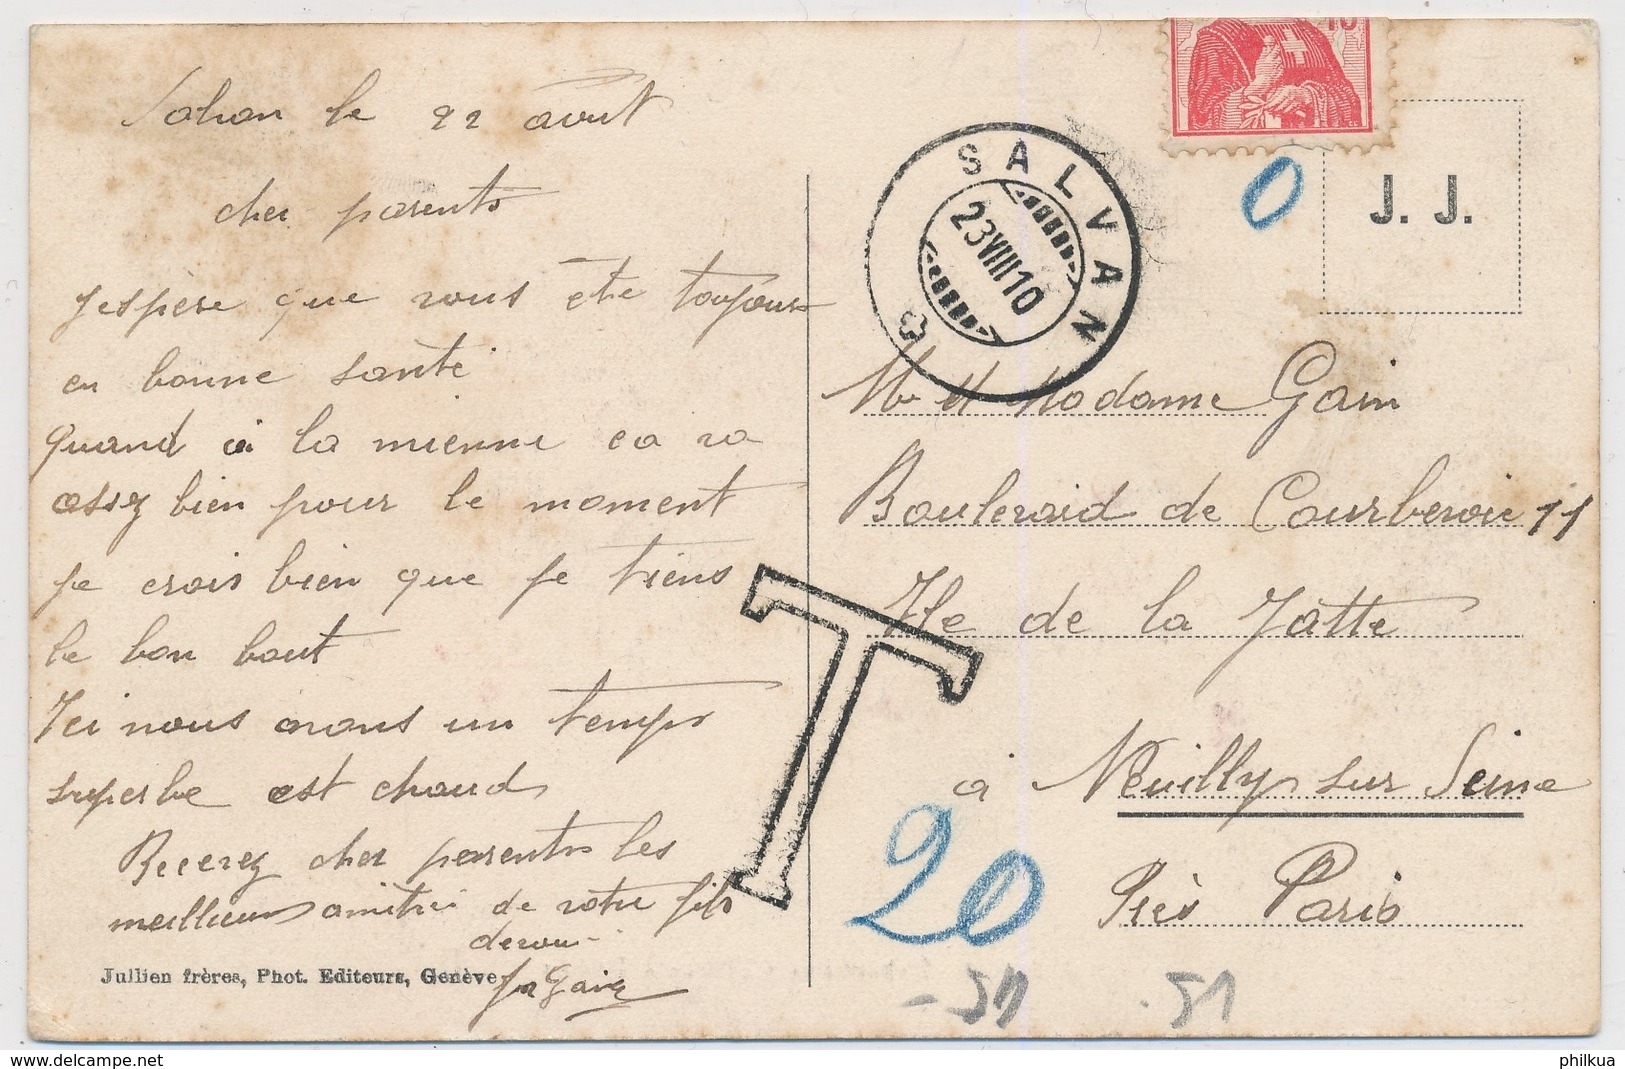 Salvan le 22 avout
cher parents
J'espère que vous ète toujours
en bonne santé
quand a la mienne ca va
assez bien pour le moment
je crois bien que je tiens
le bon bout
Ici nous avons un temps
superbe est chaud
Recevez cher parents les
meilleurs amitié de votre fils
devou
Gain
Jullien frères, Phot. Editeurs, Genève
10
SALVAN
23 VIII 10
0
J. J.
M et Madame Gain
Boulevard de Courbevoie 11
Ile de la Jatte
à Neuilly sur Seine
Près Paris
T
20
www.delcampe.net
philkua